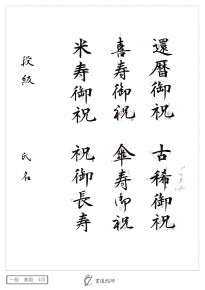 還暦御祝 古稀御祝
喜寿御祝 傘寿御祝
米寿御祝 祝御長寿
段級 氏名
一般 書道教師